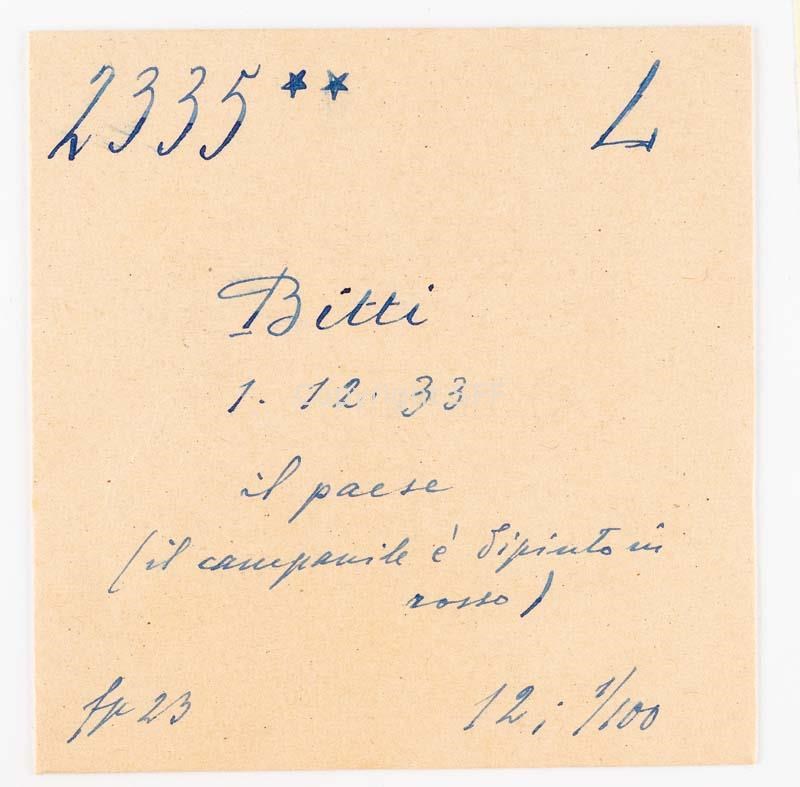 2335** L
Bitti
1. 12. 33
il paese
(il campanile è dipinto in
rosso)
fp 23 12; 1/100